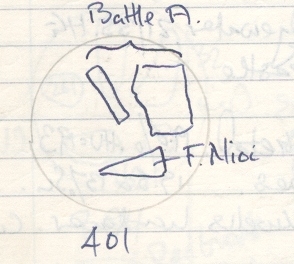 Battle A.
F. Nioi
401